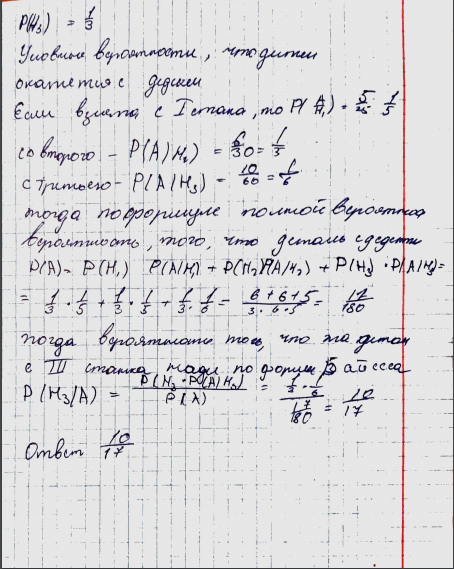 P(H₃) = 1/3
Условные вероятности, что
окажется с
Если взята с I станка, то P(A/H₁) = 5/25 = 1/5
со второго – P(A/H₂) = 6/30 = 1/5
с третьего – P(A/H₃) = 10/60 = 1/6
тогда по формуле полной
вероятность, того, что деталь с
P(A) = P(H₁) P(A/H₁) + P(H₂)P(A/H₂) + P(H₃)·P(A/H₃) =
= 1/3 · 1/5 + 1/3 · 1/5 + 1/3 · 1/6 = 6+6+5/3·6·5 = 17/180
тогда вероятность того, что эта
с III станка по
P(H₃/A) = P(H₃·P(A/H₃)/P(A) = 1/3 · 1/6 / 17/180 = 10/17
Ответ 10/17